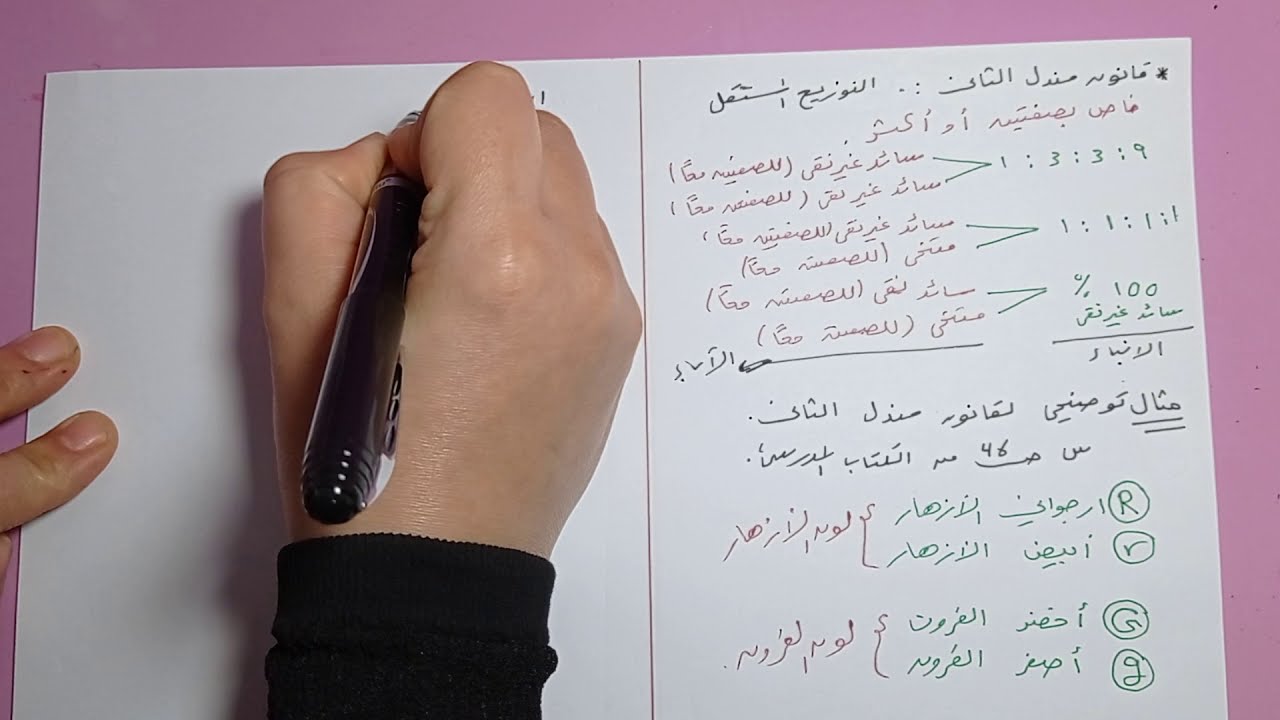 * قانون مندل الثاني :. التوزيع المستقل
خاص بصفتين أو أكثر.
٩ : 3 : 3 : ١ سائد غير نقي (للصفتين معاً)
سائد غير نقي (للصفتين معاً)
١ : ١ : ١ : ١ سائد غير نقي (للصفتين معاً)
متنحي (للصفتين معاً)
١٠٠ % سائد نقي (للصفتين معاً)
سائد غير نقي متنحي (للصفتين معاً)
الابناء الآباء
مثال توضيحي لقانون مندل الثاني.
س صـ ٤٦ من الكتاب المدرسي.
R ارجواني الازهار
r أبيض الازهار
لون الازهار
G أخضر القرون
g أصفر القرون
لون القرون.